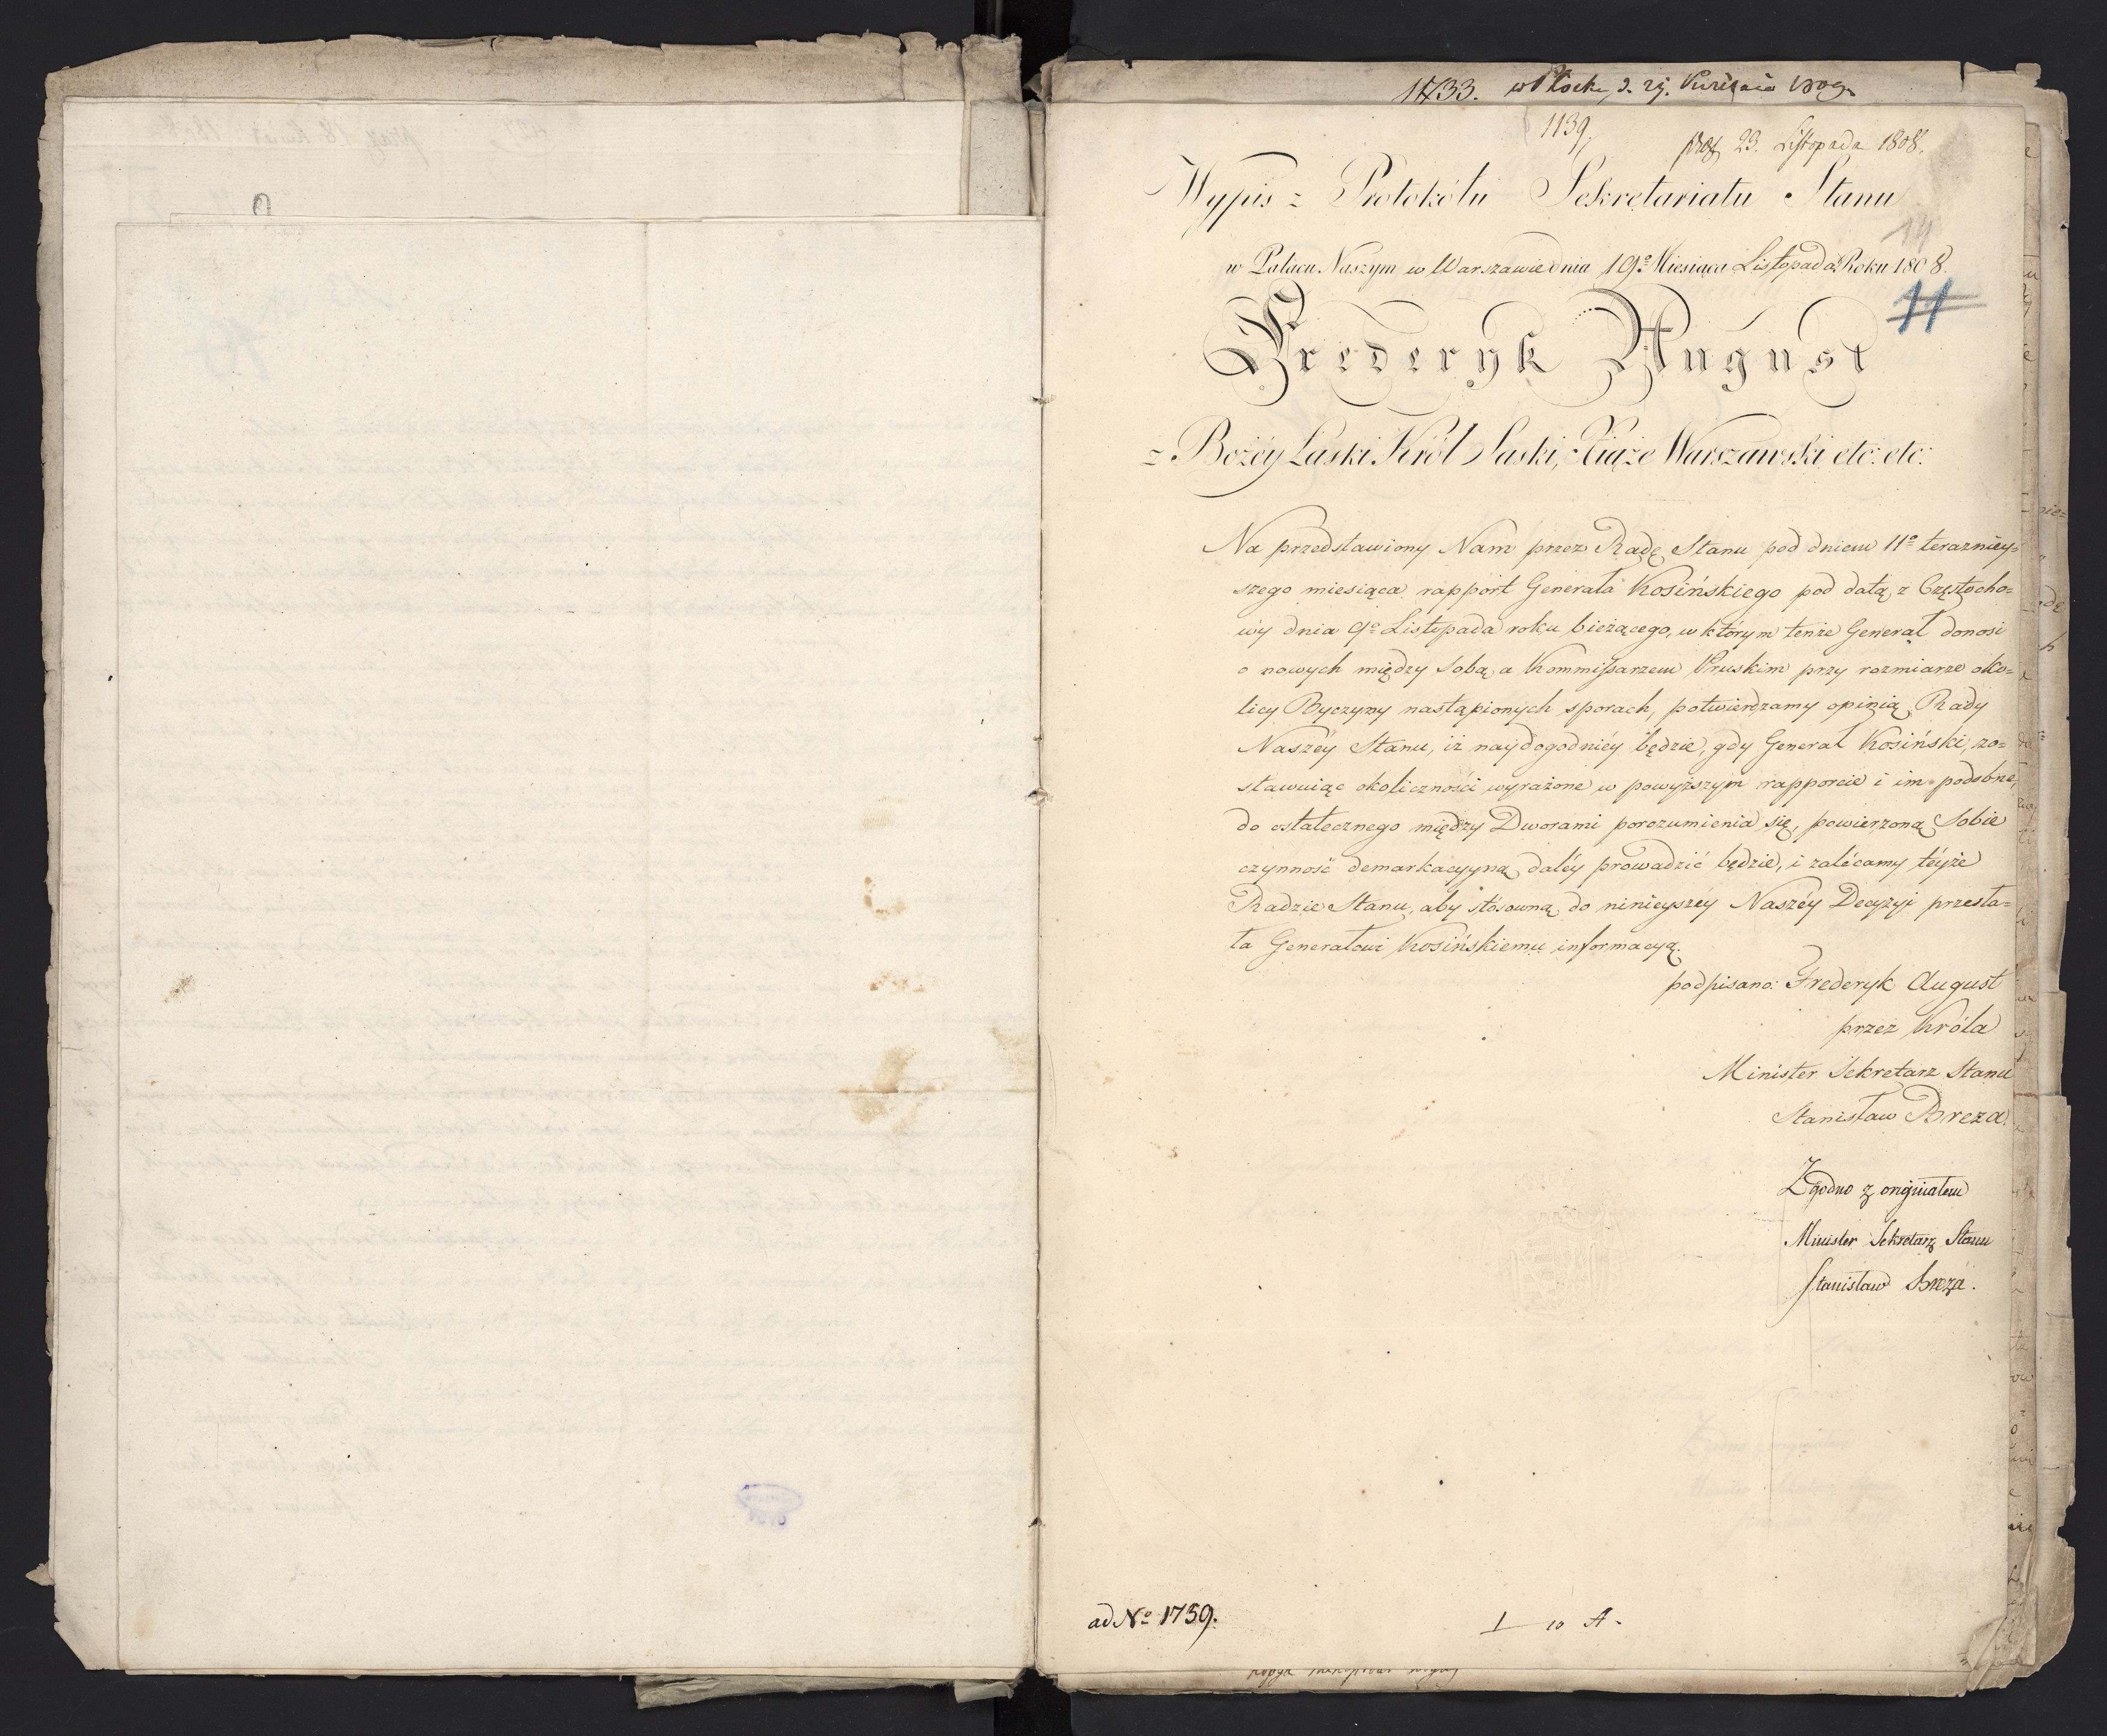 1733. w
1139.
23. Listopada 1808.
Wypis z Protokółu Sekretariatu Stanu
14
w Pałacu Naszym w Warszawie dnia 19º Miesiąca Listopada Roku 1808.
11
Frederyk August
z Bożéy Łaski Król Saski, Xiąże Warszawski etc: etc:
Na przedstawiony Nam przez Radę Stanu pod dniem 11º terazniey=
szego miesiąca rapport Generała Kosińskiego pod datą z Częstocho=
wy dnia 9º Listopada roku bieżącego, w którym tenże Generał donosi
o nowych między sobą a Kommissarzem Pruskim przy rozmiarze oko=
licy Byczyny nastąpionych sporach, potwierdzamy opinią Rady
Naszéy Stanu, iż naydogodniéy będzie, gdy Generał Kosiński, zo=
stawuiąc okoliczności wyrażone w powyższym rapporcie i im podobne,
do ostatecznego między Dworami porozumienia się, powierzoną Sobie
czynność demarkacyyną daléy prowadzić będzie, i zalécamy téyże
Radzie Stanu, aby stósowną do ninieyszéy Naszéy Decyzyi przesła=
ła Generałowi Kosińskiemu informacyą.
podpisano: Frederyk August
przez Króla
Minister Sekretarz Stanu
Stanisław Breza.
Zgodno z originałem
Minister Sekretarz Stanu
Stanisław Breza.
ad Nº 1759.